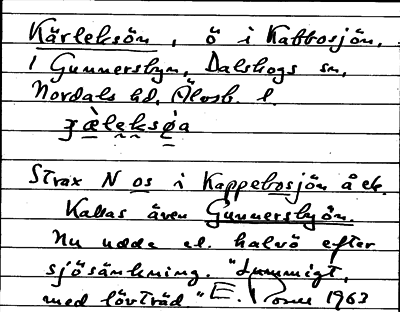 Kärleksön, ö i Kabbosjön,
i Gunnersbyn, Dalskogs sn,
Nordals hd, Älvsb. l.
ʒæ̀leksø̀a
Strax N os i Kappebosjön å ek.
Kallas även Gunnersbyön.
Nu udde el. halvö efter
sjösänkning. "Lummigt,
med lövträd" E. 1963